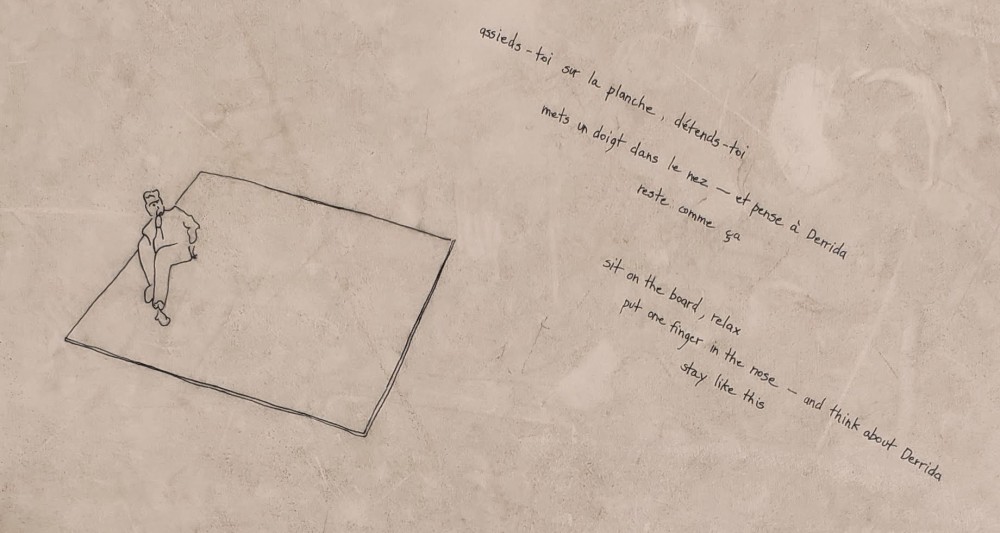 assieds-toi sur la planche, détends-toi
mets un doigt dans le nez — et pense à Derrida
reste comme ça
sit on the board, relax
put one finger in the nose — and think about Derrida
stay like this